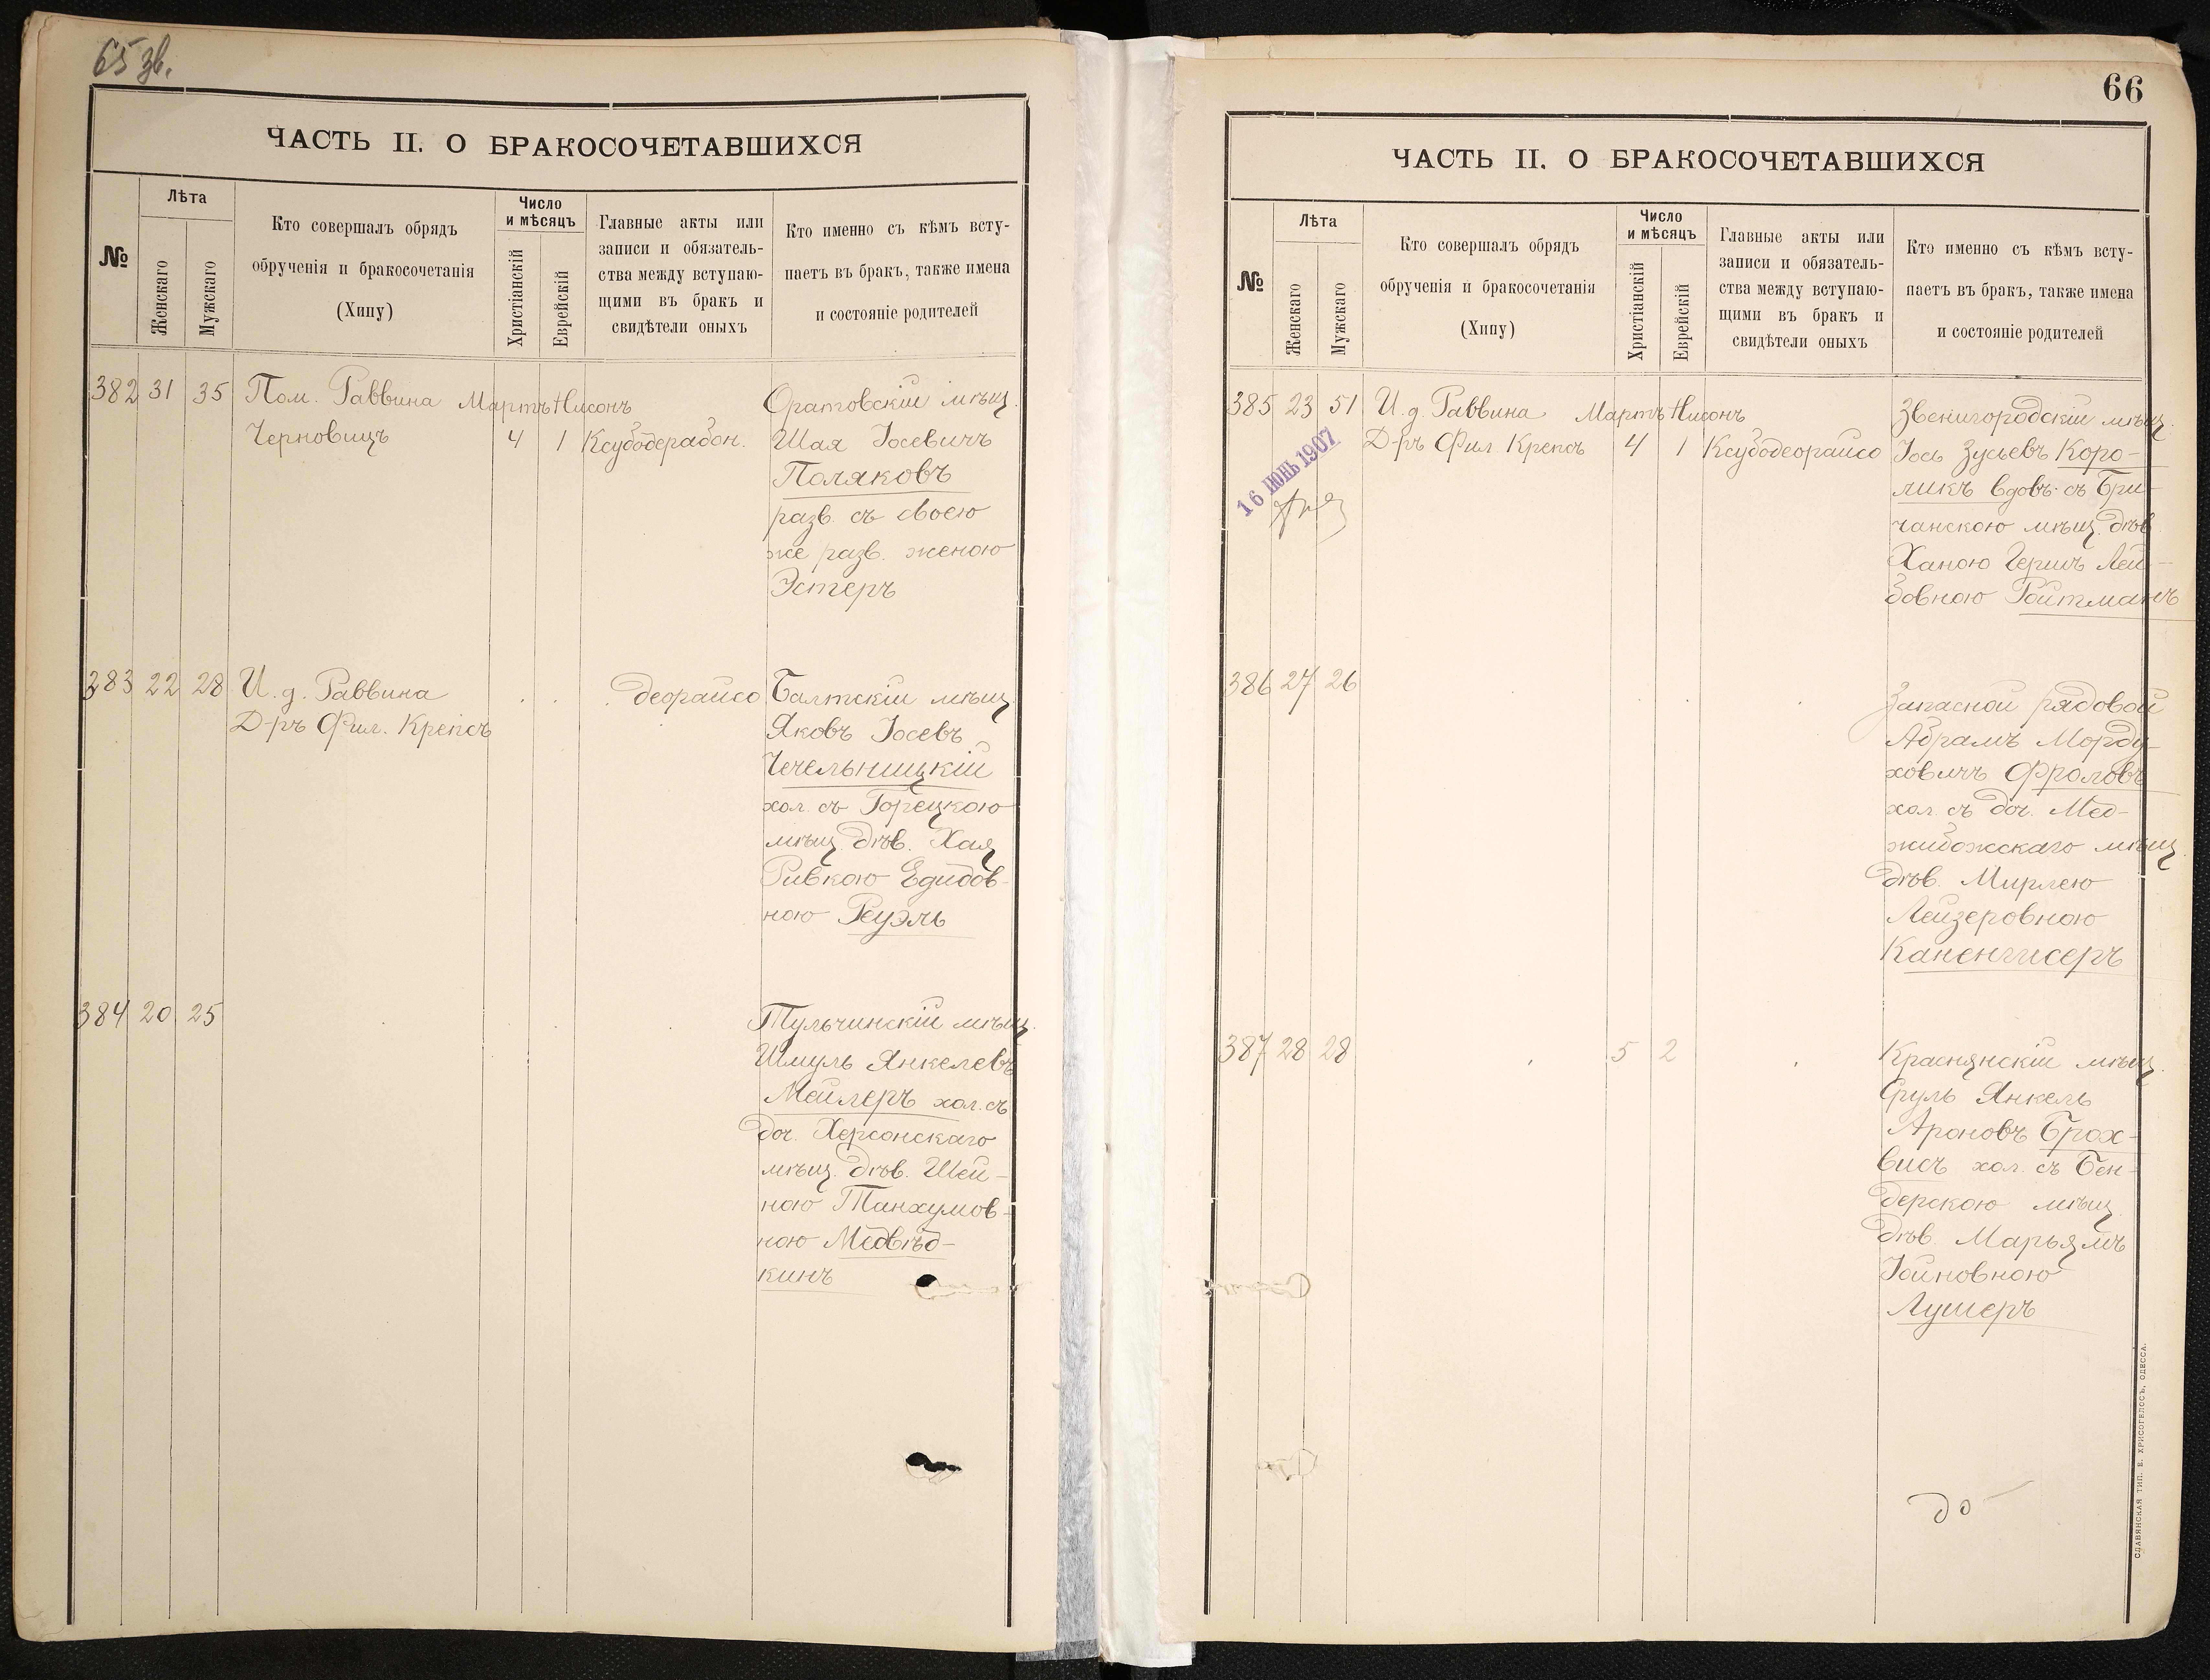 65 зв.
ЧАСТЬ II. О БРАКОСОЧЕТАВШИХСЯ
№
Лѣта
Женскаго
Мужскаго
Кто совершалъ обрядъ
обрученія и бракосочетанія
(Хипу)
Число
и мѣсяцъ
Христіанскій
Еврейскій
Главные акты или
записи и обязатель-
ства между вступаю-
щими въ бракъ и
свидѣтели оныхъ
Кто именно съ кѣмъ всту-
паетъ въ бракъ, также имена
и состояніе родителей
382 31 35 Пом. Раввина Мартъ Нисонъ Оратовскій мѣщ.
Черновицъ 4 1 Ксубодерабон. Шая Іосевичъ
Поляковъ
разв. съ своею
же разв. женою
Эстеръ
383 22 28 И. д. Раввина деорайсо Балтскій мѣщ.
Д-ръ Фил. Крепсъ Яковъ Іосевъ
Чечельницкій
хол. съ Горецкою
мѣщ. дѣв. Хая
Ривкою Едидов-
ною Реуэль
384 20 25 Тульчинскій мѣщ.
Шмуль Янкелевъ
Мейлеръ хол. съ
доч. Херсонскаго
мѣщ. дѣв. Шей-
ною Танхумов-
ною Медвѣд-
кинъ
66
ЧАСТЬ II. О БРАКОСОЧЕТАВШИХСЯ
№
Лѣта
Женскаго
Мужскаго
Кто совершалъ обрядъ
обрученія и бракосочетанія
(Хипу)
Число
и мѣсяцъ
Христіанскій
Еврейскій
Главные акты или
записи и обязатель-
ства между вступаю-
щими въ бракъ и
свидѣтели оныхъ
Кто именно съ кѣмъ всту-
паетъ въ бракъ, также имена
и состояніе родителей
385 23 51 И. д. Раввина Мартъ Нисонъ Звенигородскій мѣщ.
Д-ръ Фил. Крепсъ 4 1 Ксубодеорайсо Іось Зусьевъ Коро-
16 ІЮНЬ 1907
ликъ вдовъ съ Бри-
чанскою мѣщ. дѣв.
Ханою Гершъ Лей-
бовною Ройтманъ
386 27 26 Запасной рядовой
Абрамъ Морду-
ховичъ Фроловъ
хол. съ доч. Мед-
жибожскаго мѣщ.
дѣв. Мирлею
Лейзеровною
Каненгисеръ
387 28 28 5 2 Краснянскій мѣщ.
Сруль Янкель
Ароновъ Брох-
висъ хол. съ Бен-
дерскою мѣщ.
дѣв. Марьямъ
Іойновною
Лушеръ
СЛАВЯНСКАЯ ТИП. Е. ХРИСОГЕЛОСЪ, ОДЕССА.